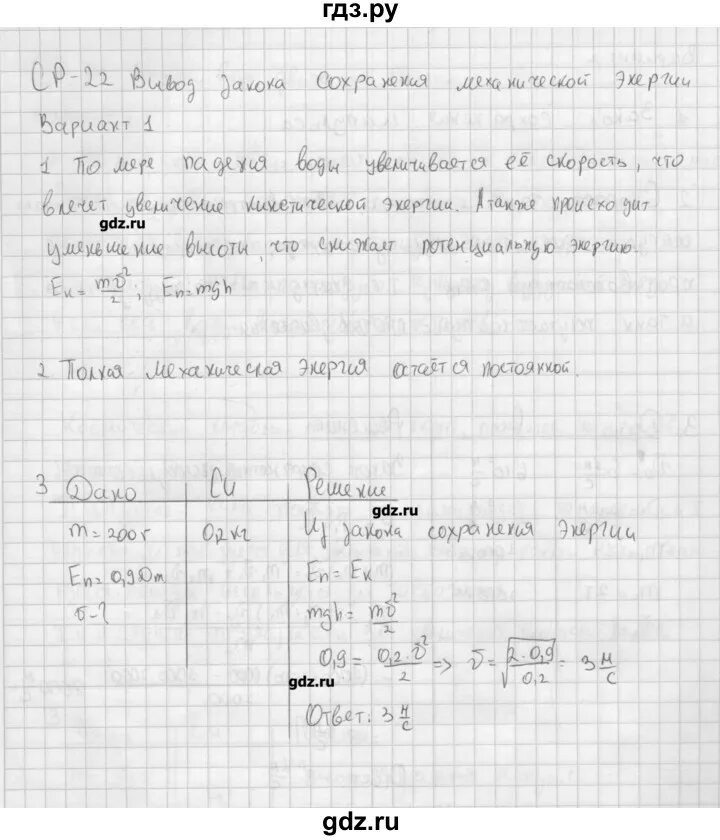 гдз.ру
СР-22 Вывод закона сохранения механической энергии
Вариант 1
1 По мере падения воды увеличивается её скорость, что
влечет увеличение кинетической энергии. А также происходит
gdz.ru
уменьшение высоты, что снижает потенциальную энергию.
Eк = mv²/2 ; Eп = mgh
2 Полная механическая энергия остаётся постоянной.
3 Дано СИ Решение
gdz.ru
m = 200 г 0,2 кг Из закона сохранения энергии
Eп = 0,9 Дж Eп = Eк
v - ? mgh = mv²/2
0,9 = 0,2·v²/2 => v = √(2·0,9/0,2) = 3 м/с
gdz.ru
Ответ: 3 м/с
gdz.ru